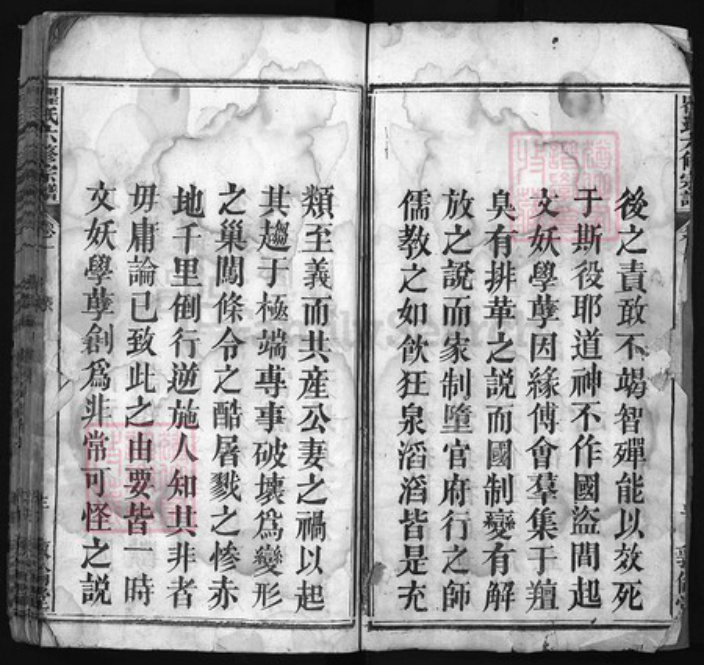 後之責敢不竭智殫能以效死
于斯役耶道神不作國盜間起
文妖學孽因緣傅會羣集于羶
臭有排革之説而國制變有解
放之説而家制墮官府行之師
儒教之如飲狂泉滔滔皆是充
類至義而共産公妻之禍以起
其趨于極端專事破壞爲變形
之巢闖條令之酷屠戮之慘赤
地千里倒行逆施人知其非者
毋庸論已致此之由要皆一時
文妖學孽創爲非常可怪之説
氏六修宗譜
卷一